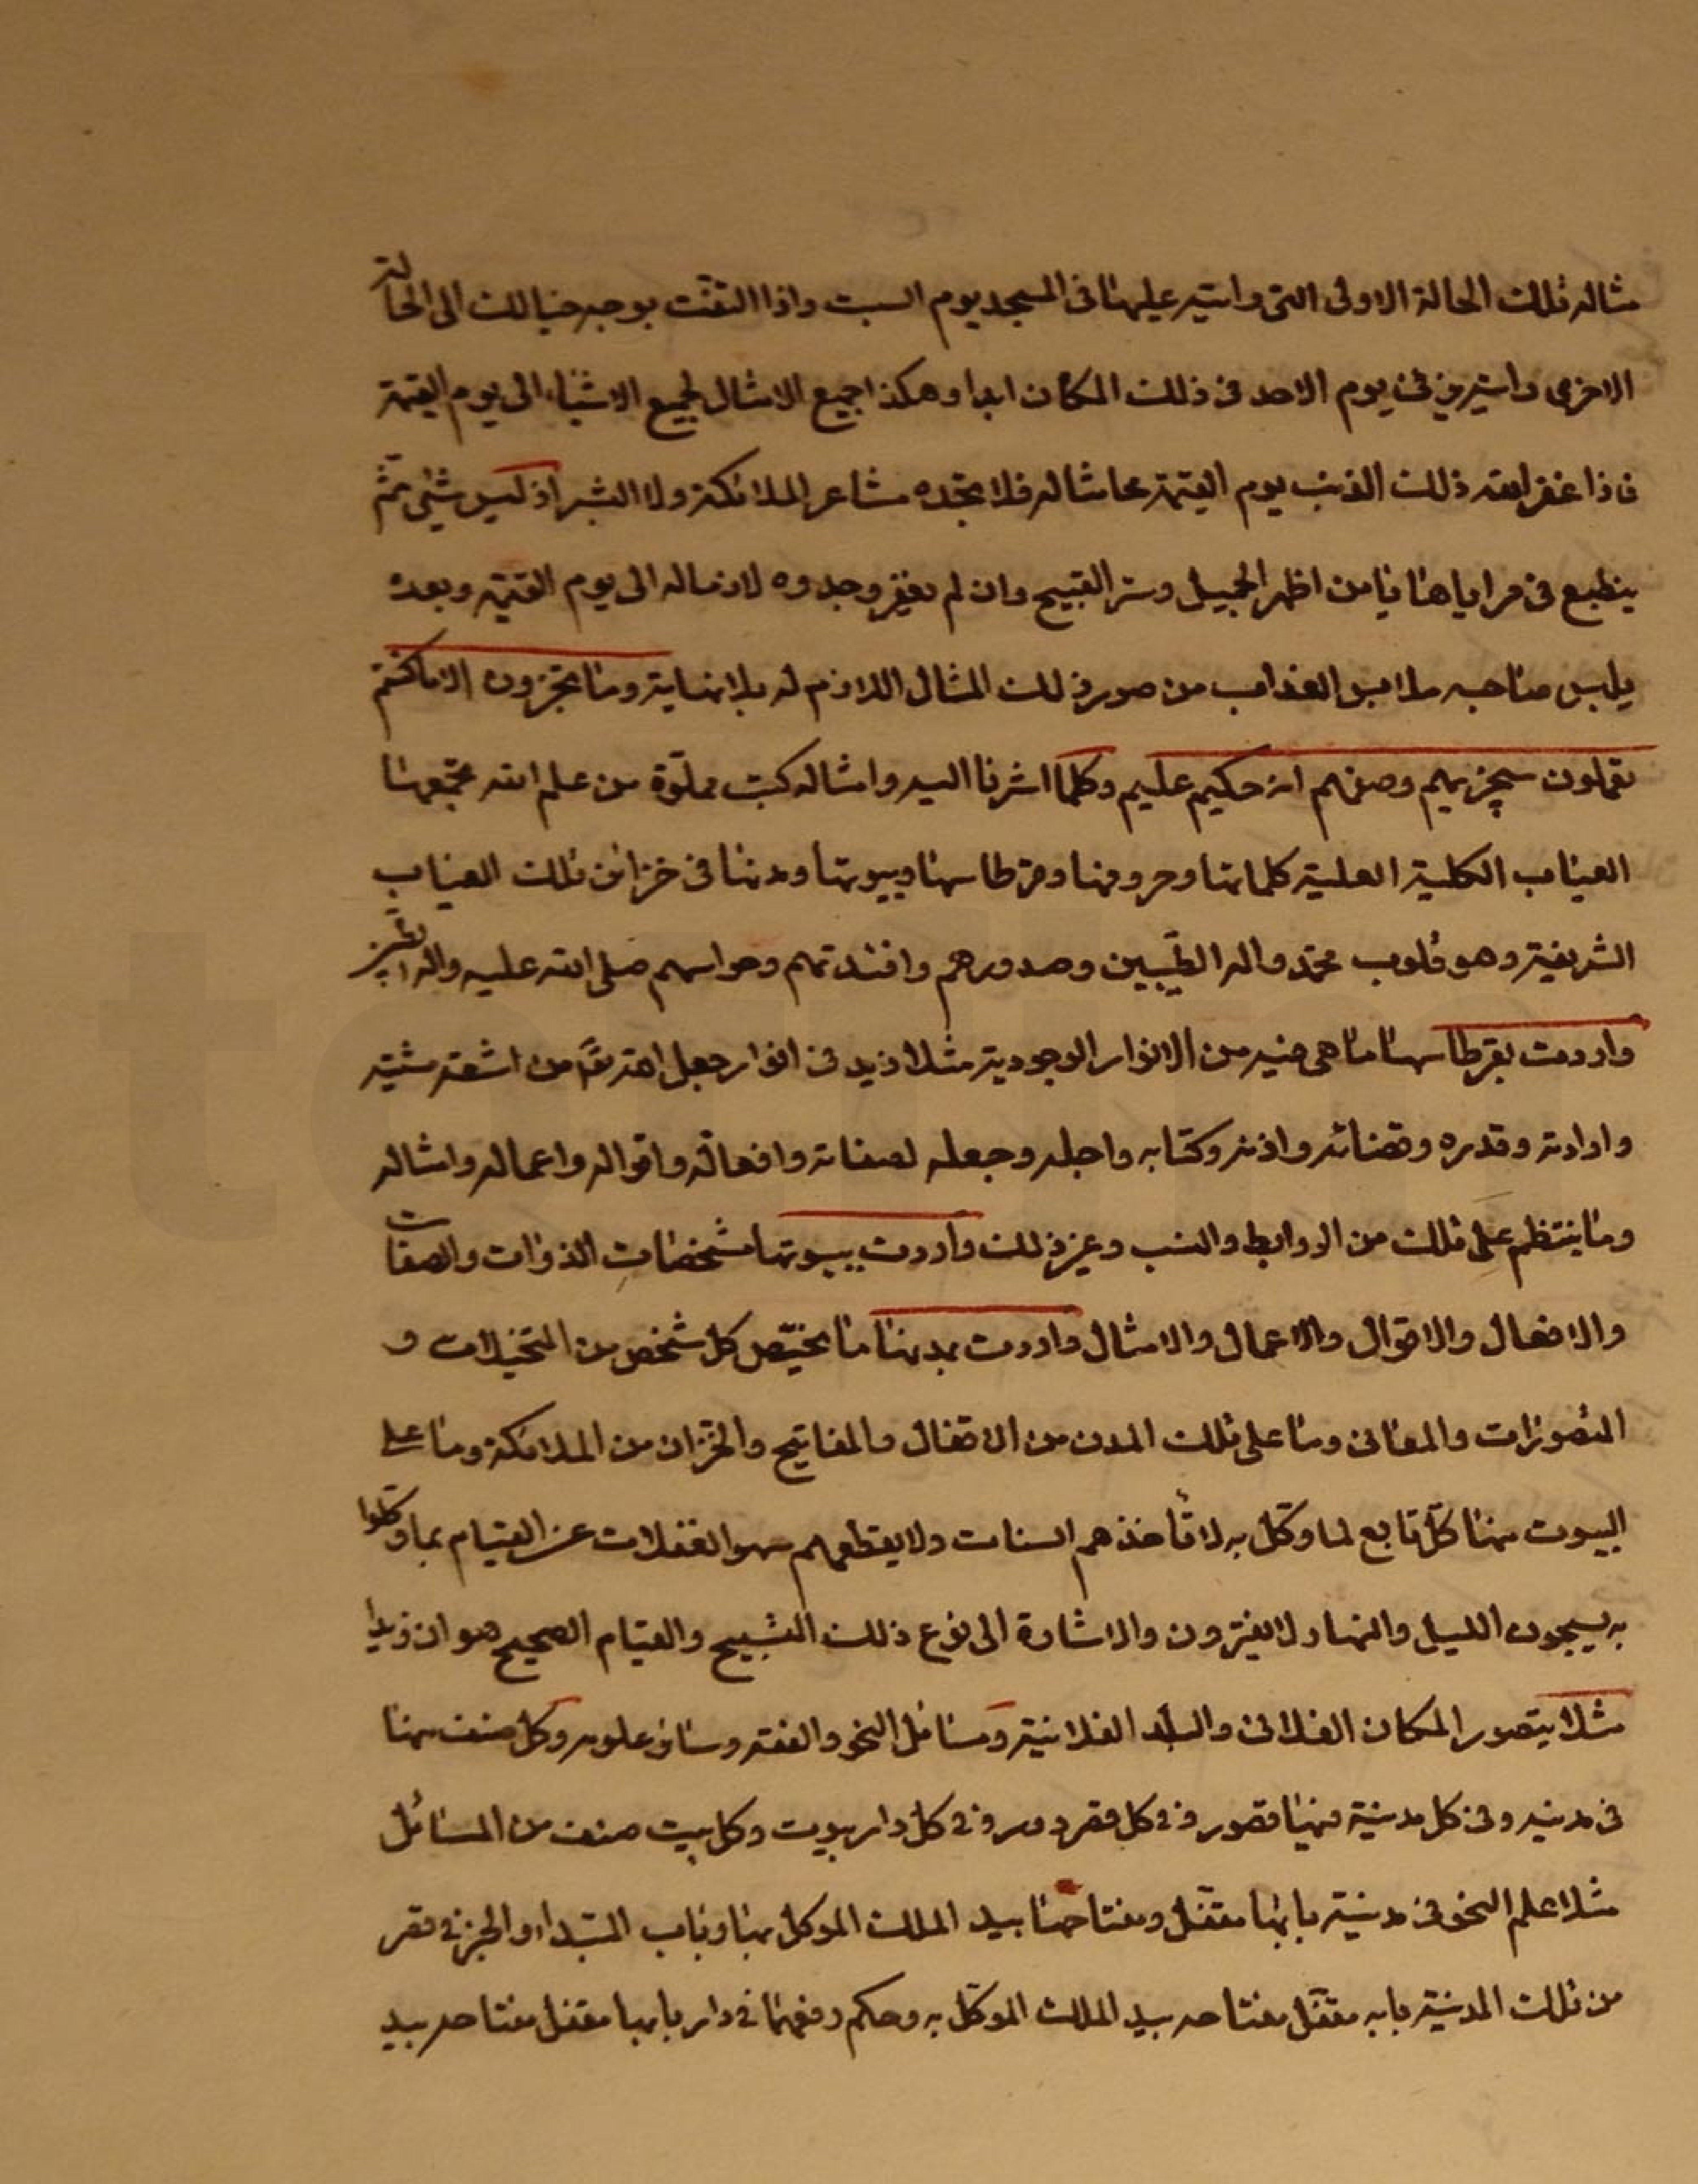 مثاله تلك الحالة الاولى التى رايته عليها فى المسجد يوم السبت واذا التفت بوجه خيالك الى الحالة
الاخرى رايته فى يوم الاحد فى ذلك المكان ابدا وهكذا جميع الامثال لجميع الاشياء الى يوم القيمة
فاذا غفر الله ذلك الذنب يوم القيمة محا مثاله فلا تجده مشاعر الملائكة ولا البشر اذ ليس شيئ ثم
ينطبع فى مراياها يا من اظهر الجميل وستر القبيح وان لم يغفر وجدوه لازما له الى يوم القيمة وبعده
يلبس صاحبه ملابس العذاب من صور ذلك المثال اللازم له بلا نهاية وما تجزون الا ما كنتم
تعملون سيجزيهم وصفهم انه حكيم عليم وكلما اشرنا اليه وامثاله كتب مملوّة من علم الله تجمعها
الغياب الكلية العلية كلماتها وحروفها وقرطاسها وبيوتها ومدنها فى خزائن تلك الغياب
الشريفة وهو قلوب محمّد واله الطيّبين وصدورهم وافئدتهم وحواسهم صلى الله عليه واله
واردت بقرطاسها ما هى فيه من الانوار الوجودية مثلا زيد فى انوار جعل الله له من اشعة مشيته
وارادته وقدره وقضائه واذنه وكتابه واجله وجعله لصفاته وافعاله واقواله واعماله وامثاله
وما ينتظم على تلك من الروابط والنسب وغير ذلك واردت ببيوتها مشخصات الذوات والصفات
والافعال والاقوال والاعمال والامثال واردت بمدينها ما يختصّ كل شخص من التخيلات و
التصورات والمعانى وما على تلك المدن من الاقفال والمفاتيح والخزان من الملائكة وما على
البيوت منها كلّ تابع لما وكّل به لا تأخذهم السنات ولا يقطعهم سهو الغفلات عن القيام بما وكلوا
به يسبحون الليل والنهار لا يفترون والاشارة الى نوع ذلك التسبيح والقيام الصحيح هو ان زيدا
مثلا يتصور المكان الفلانى والبلد الفلانية ومسائل النحو والفقه وسائر علومه وكل صنف منها
فى مدينه وفى كل مدينة فيها قصور وفى كل قصر دور وفى كل دار بيوت وكل بيت صنف من المسائل
مثلا علم النحو فى مدينة بابها مقفّل ومفتاحها بيد الملك الموكل بها وباب المبتدا والخبر فى قصر
من تلك المدينة بابه مقفّل مفتاحه بيد الملك الموكّل به وحكم رفعهما فى دار بابها مقفل مفتاحه بيد